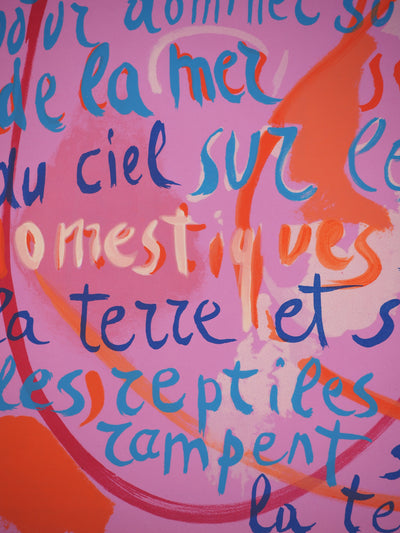 pour dominer su
de la mer
du ciel sur le
omestiques
la terre et s
les reptiles
rampent s
la te